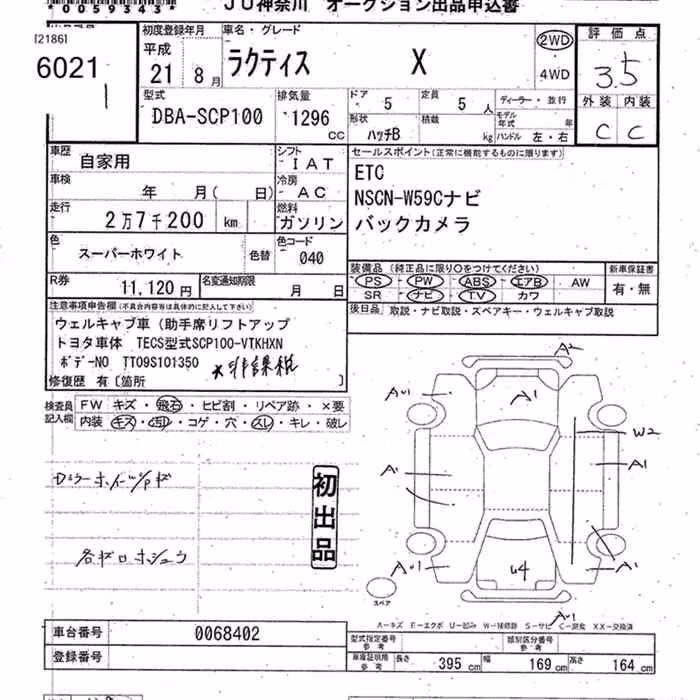 *0059343*
JU神奈川 オークション出品申込書
[2186]
6021
初度登録年月
平成
21年 8月
車名・グレード
ラクティス X
2WD
4WD
評価点
3.5
外装 内装
C C
型式
DBA-SCP100
排気量
1296 CC
ドア 5
定員 5人
ディーラー・並行
形状 ハッチB
積載 kg
モデル年式 年
ハンドル 左・右
車歴
自家用
シフト
IAT
セールスポイント(正常に機能するものに限ります)
ETC
NSCN-W59Cナビ
バックカメラ
車検
年 月( 日)
冷房
AC
走行
2万7千200 km
燃料
ガソリン
色
スーパーホワイト
色替
色コード
040
装備品(純正品に限り○をつけてください)
PS PW ABS エアB AW
SR ナビ T.V カワ
新車保証書
有・無
R券
11,120円
名変通知期限
月 日
後日品 取説・ナビ取説・スペアキー・ウェルキャブ取説
注意事項申告欄(不具合内容等は具体的に記入して下さい)
ウェルキャブ車(助手席リフトアップ
トヨタ車体 TECS型式SCP100-VTKHXN
ボデーNO TT09S101350 *非課税
修復歴 有〔箇所 〕
検査員記入欄
FW キズ・飛石・ヒビ割・リペア跡・×要
内装 キズ・汚レ・コゲ・穴・スレ・キレ・破レ
初出品
A2
AU1
A1
W2
A1
A1
AU1
U4
A1
AU1
スペア
A−キズ E−エクボ U−凹み W−補修跡 S−サビ C−腐食 XX−交換済
車台番号 0068402
登録番号
型式指定番号 参考
類別区分番号 参考
車庫証明用 参考
長さ 395 cm 幅 169 cm 高さ 164 cm